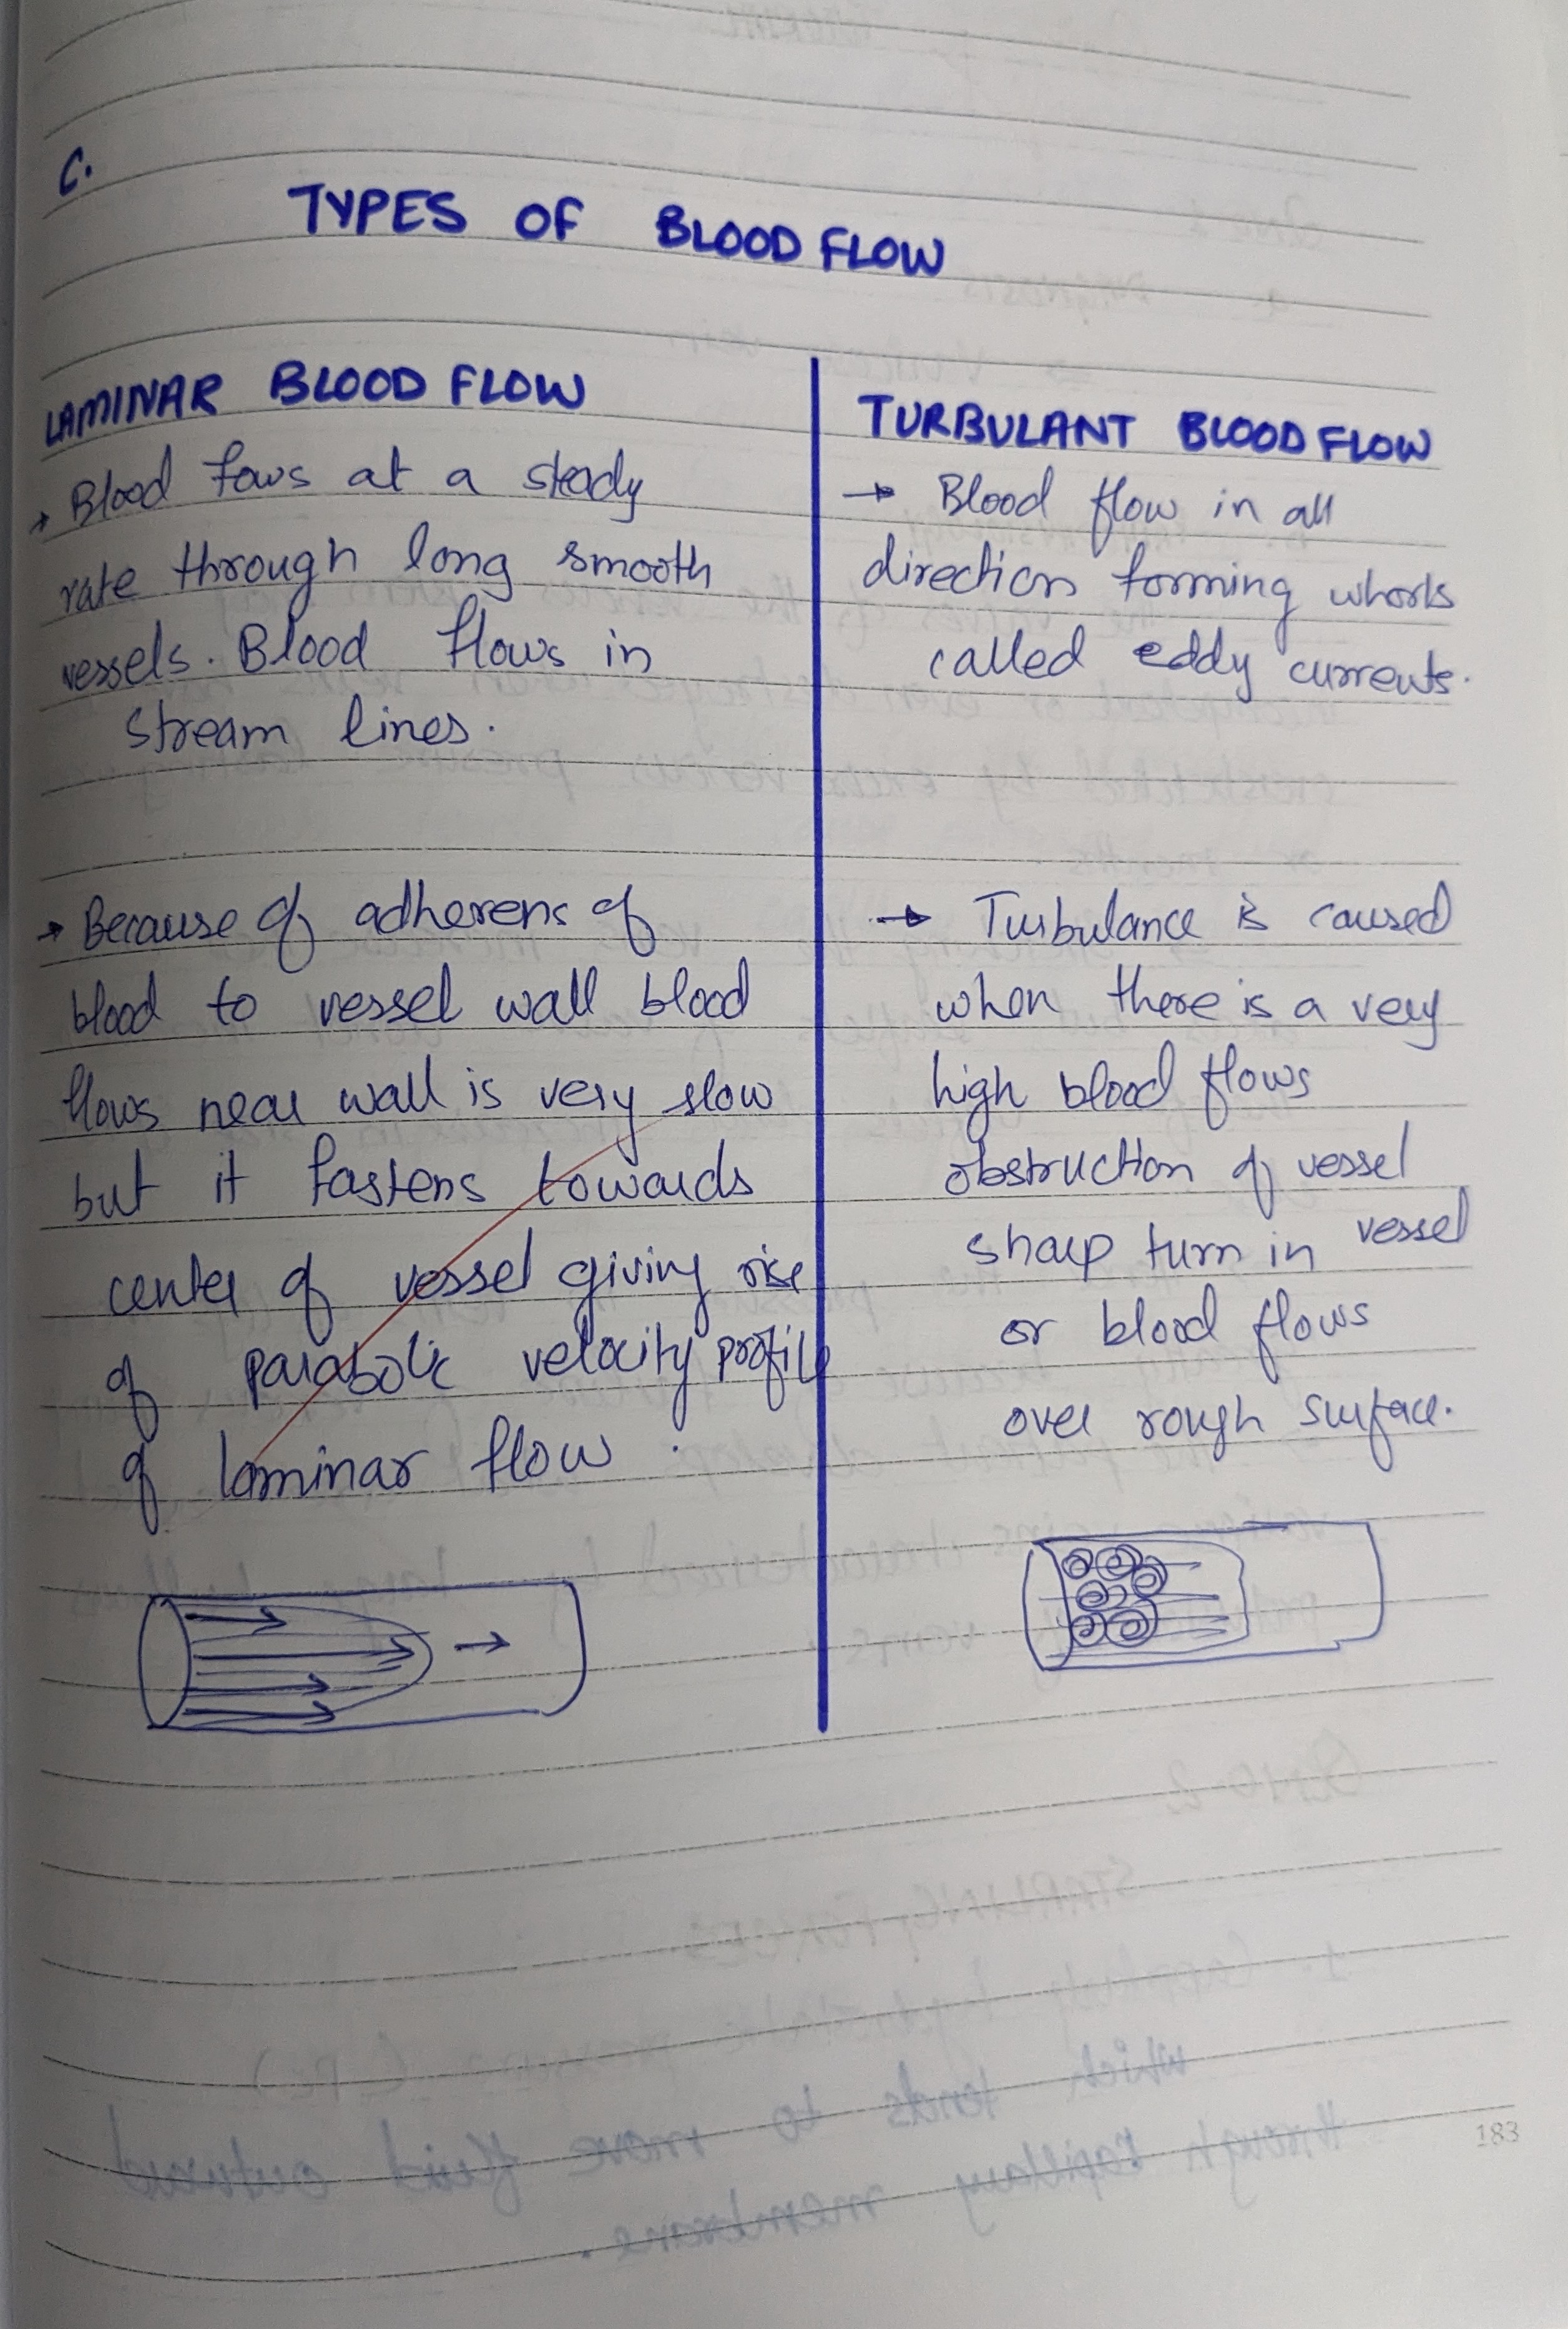 C.
TYPES OF BLOOD FLOW
LAMINAR BLOOD FLOW
→ Blood fows at a steady
rate through long smooth
vessels. Blood flows in
stream lines.
→ Because of adherens of
blood to vessel wall blood
flows near wall is very slow
but it fastens towards
center of vessel giving rise
of parabolic velocity profile
of laminar flow .
TURBULANT BLOOD FLOW
→ Blood flow in all
direction forming whorls
called eddy currents.
→ Turbulance is caused
when there is a very
high blood flows
obstruction of vessel
sharp turn in vessel
or blood flows
over rough surface.
183